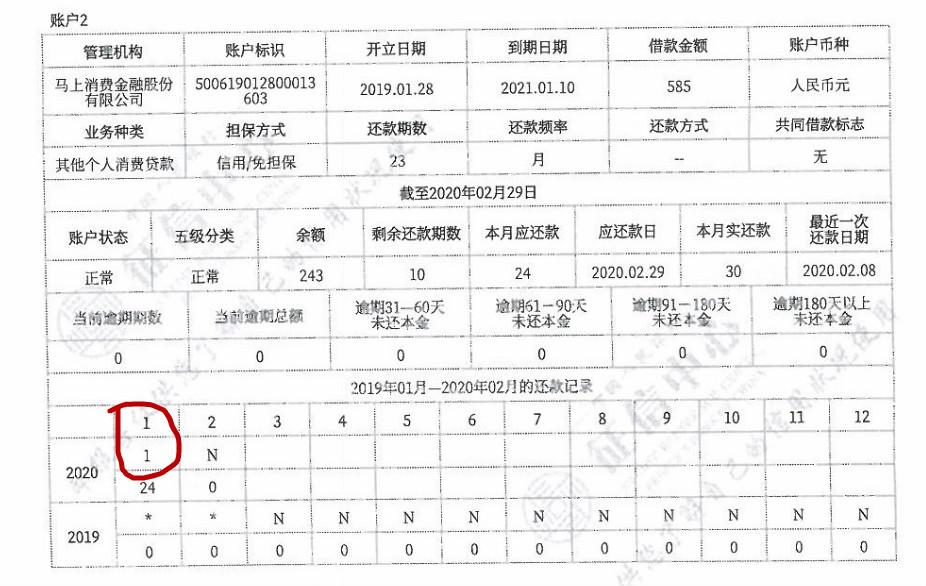 账户2
管理机构 账户标识 开立日期 到期日期 借款金额 账户币种
马上消费金融股份有限公司 500619012800013603 2019.01.28 2021.01.10 585 人民币元
业务种类 担保方式 还款期数 还款频率 还款方式 共同借款标志
其他个人消费贷款 信用/免担保 23 月 -- 无
截至2020年02月29日
账户状态 五级分类 余额 剩余还款期数 本月应还款 应还款日 本月实还款 最近一次还款日期
正常 正常 243 10 24 2020.02.29 30 2020.02.08
当前逾期期数 当前逾期总额 逾期31—60天未还本金 逾期61—90天未还本金 逾期91—180天未还本金 逾期180天以上未还本金
0 0 0 0 0 0
2019年01月—2020年02月的还款记录
1 2 3 4 5 6 7 8 9 10 11 12
2020 1 N
24 0
2019 * * N N N N N N N N N N
0 0 0 0 0 0 0 0 0 0 0 0